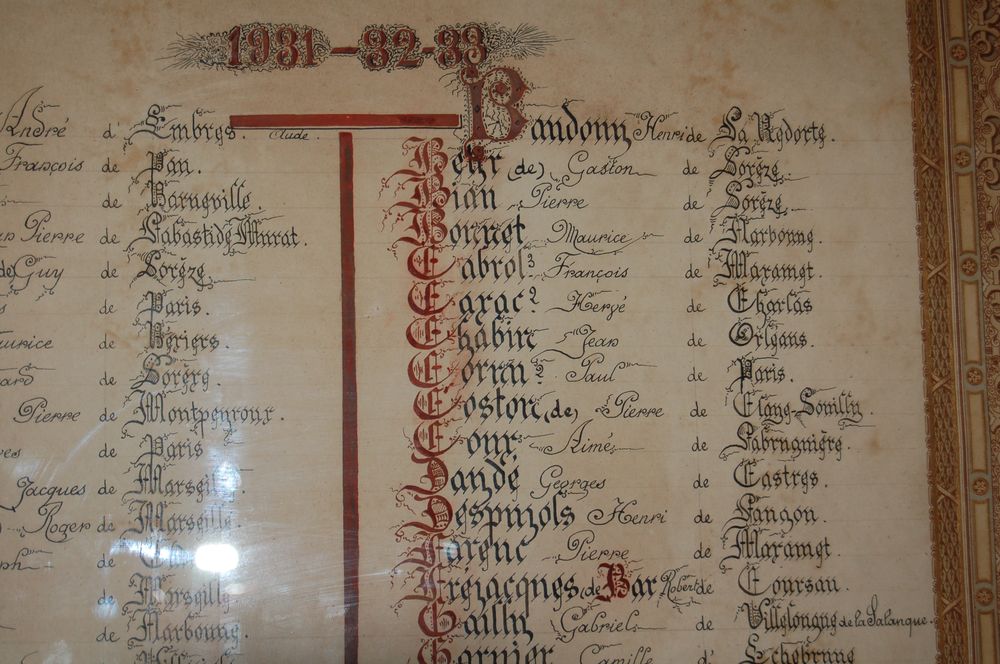 1931-32-33
André d' Embres. Aude.
François de Pau.
de Barneville.
Pierre de Labastide Murat.
de Guy de Sorèze
de Paris.
de Béziers.
de Sorèze.
Pierre de Montpeyroux.
de Paris
Jacques de Marseille
Roger de Marseille.
de
de Marseille
de Narbonne.
Baudouy Henri de La Redorte.
(de) Gaston de Sorèze.
Bian Pierre de Sorèze
Bonnet Maurice de Narbonne.
Cabrol 3 François de Mazamet.
Carac 2 Hervé de Charlas
Chabin Jean de Orléans.
Corun 2 Paul de Paris.
Coston (de) Pierre de Étang-Souilly.
Cour Aimé de Labruguière.
Daudé Georges de Castres.
Despujols Henri de Langon.
Farenc Pierre de Mazamet.
Frejacques (de) Bar Robert de Coursan.
Gailly Gabriel de Villelongue de la Salanque.
Garnier Camille de